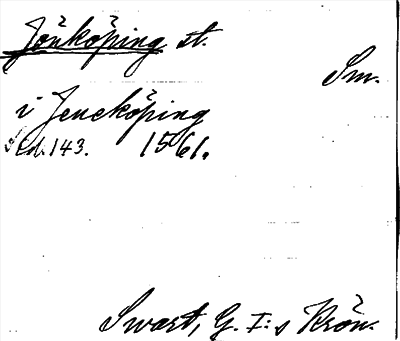 Jönköping st.
Sm.
i Jeneköping
Sid. 143. 1561.
Swart, G. I:s Krön.